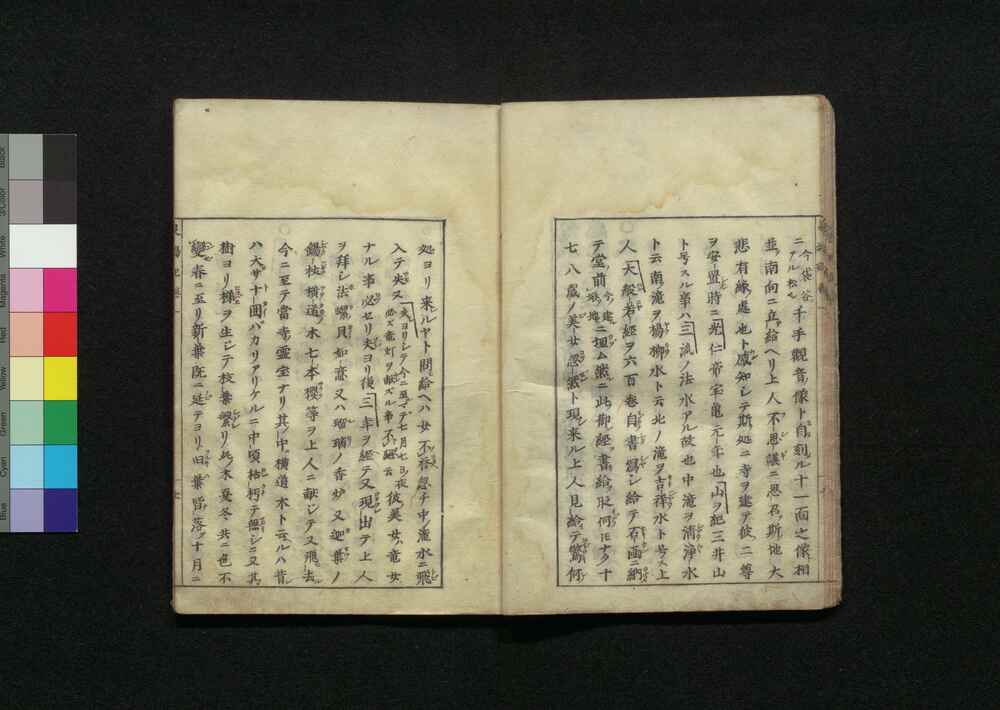 ニ今袋谷ニアル松也千手觀音像ト自刻ル十一面之像相
並南向ニ立給ヘリ上人不思議ニ思召斯地大
悲有縁處也ト感知シテ斯処ニ寺ヲ建テ彼二尊
ヲ安置時ニ光仁帝宝亀元年也山ヲ紀三井山
ト号スル事ハ三流ノ法水アル故也中滝ヲ清浄水
ト云南滝ヲ楊柳水ト云北ノ滝ヲ吉祥水ト号ス上
人大般若經ヲ六百巻自書寫シ給テ石函ニ納
テ堂前今ノ建塚地ニ埋ム然ニ此御經ヲ書給ル何トモナク十
七八歳ノ美女忽然ト現来ル上人見給テ驚何
処ヨリ来ルヤト問給ヘハ女不答忽チ中瀧水ニ飛
入テ失ス夫ヨリシテ今ニ至マデ七月七日ノ夜必ズ竜灯ヲ献ズル事不絶云彼美女竜女
ナル事必セリ夫ヨリ後三年ヲ經テ又現出テ上人
ヲ拜シ法螺貝如意又ハ瑠璃ノ香炉又迦葉ノ
錫杖横道木七本櫻等ヲ上人ニ献ジテ又飛去
今ニ至テ當寺霊宝ナリ其中横道木ト云ルハ昔
ハ大サ十囲バカリアリケルニ中頃枯朽テ倒シニ又其
樹ヨリ櫱ヲ生ジテ枝葉繁リ此ノ木夏冬共ニ色不
變春ニ至リ新葉既ニ延テヨリ旧葉皆落ツ十月ニ